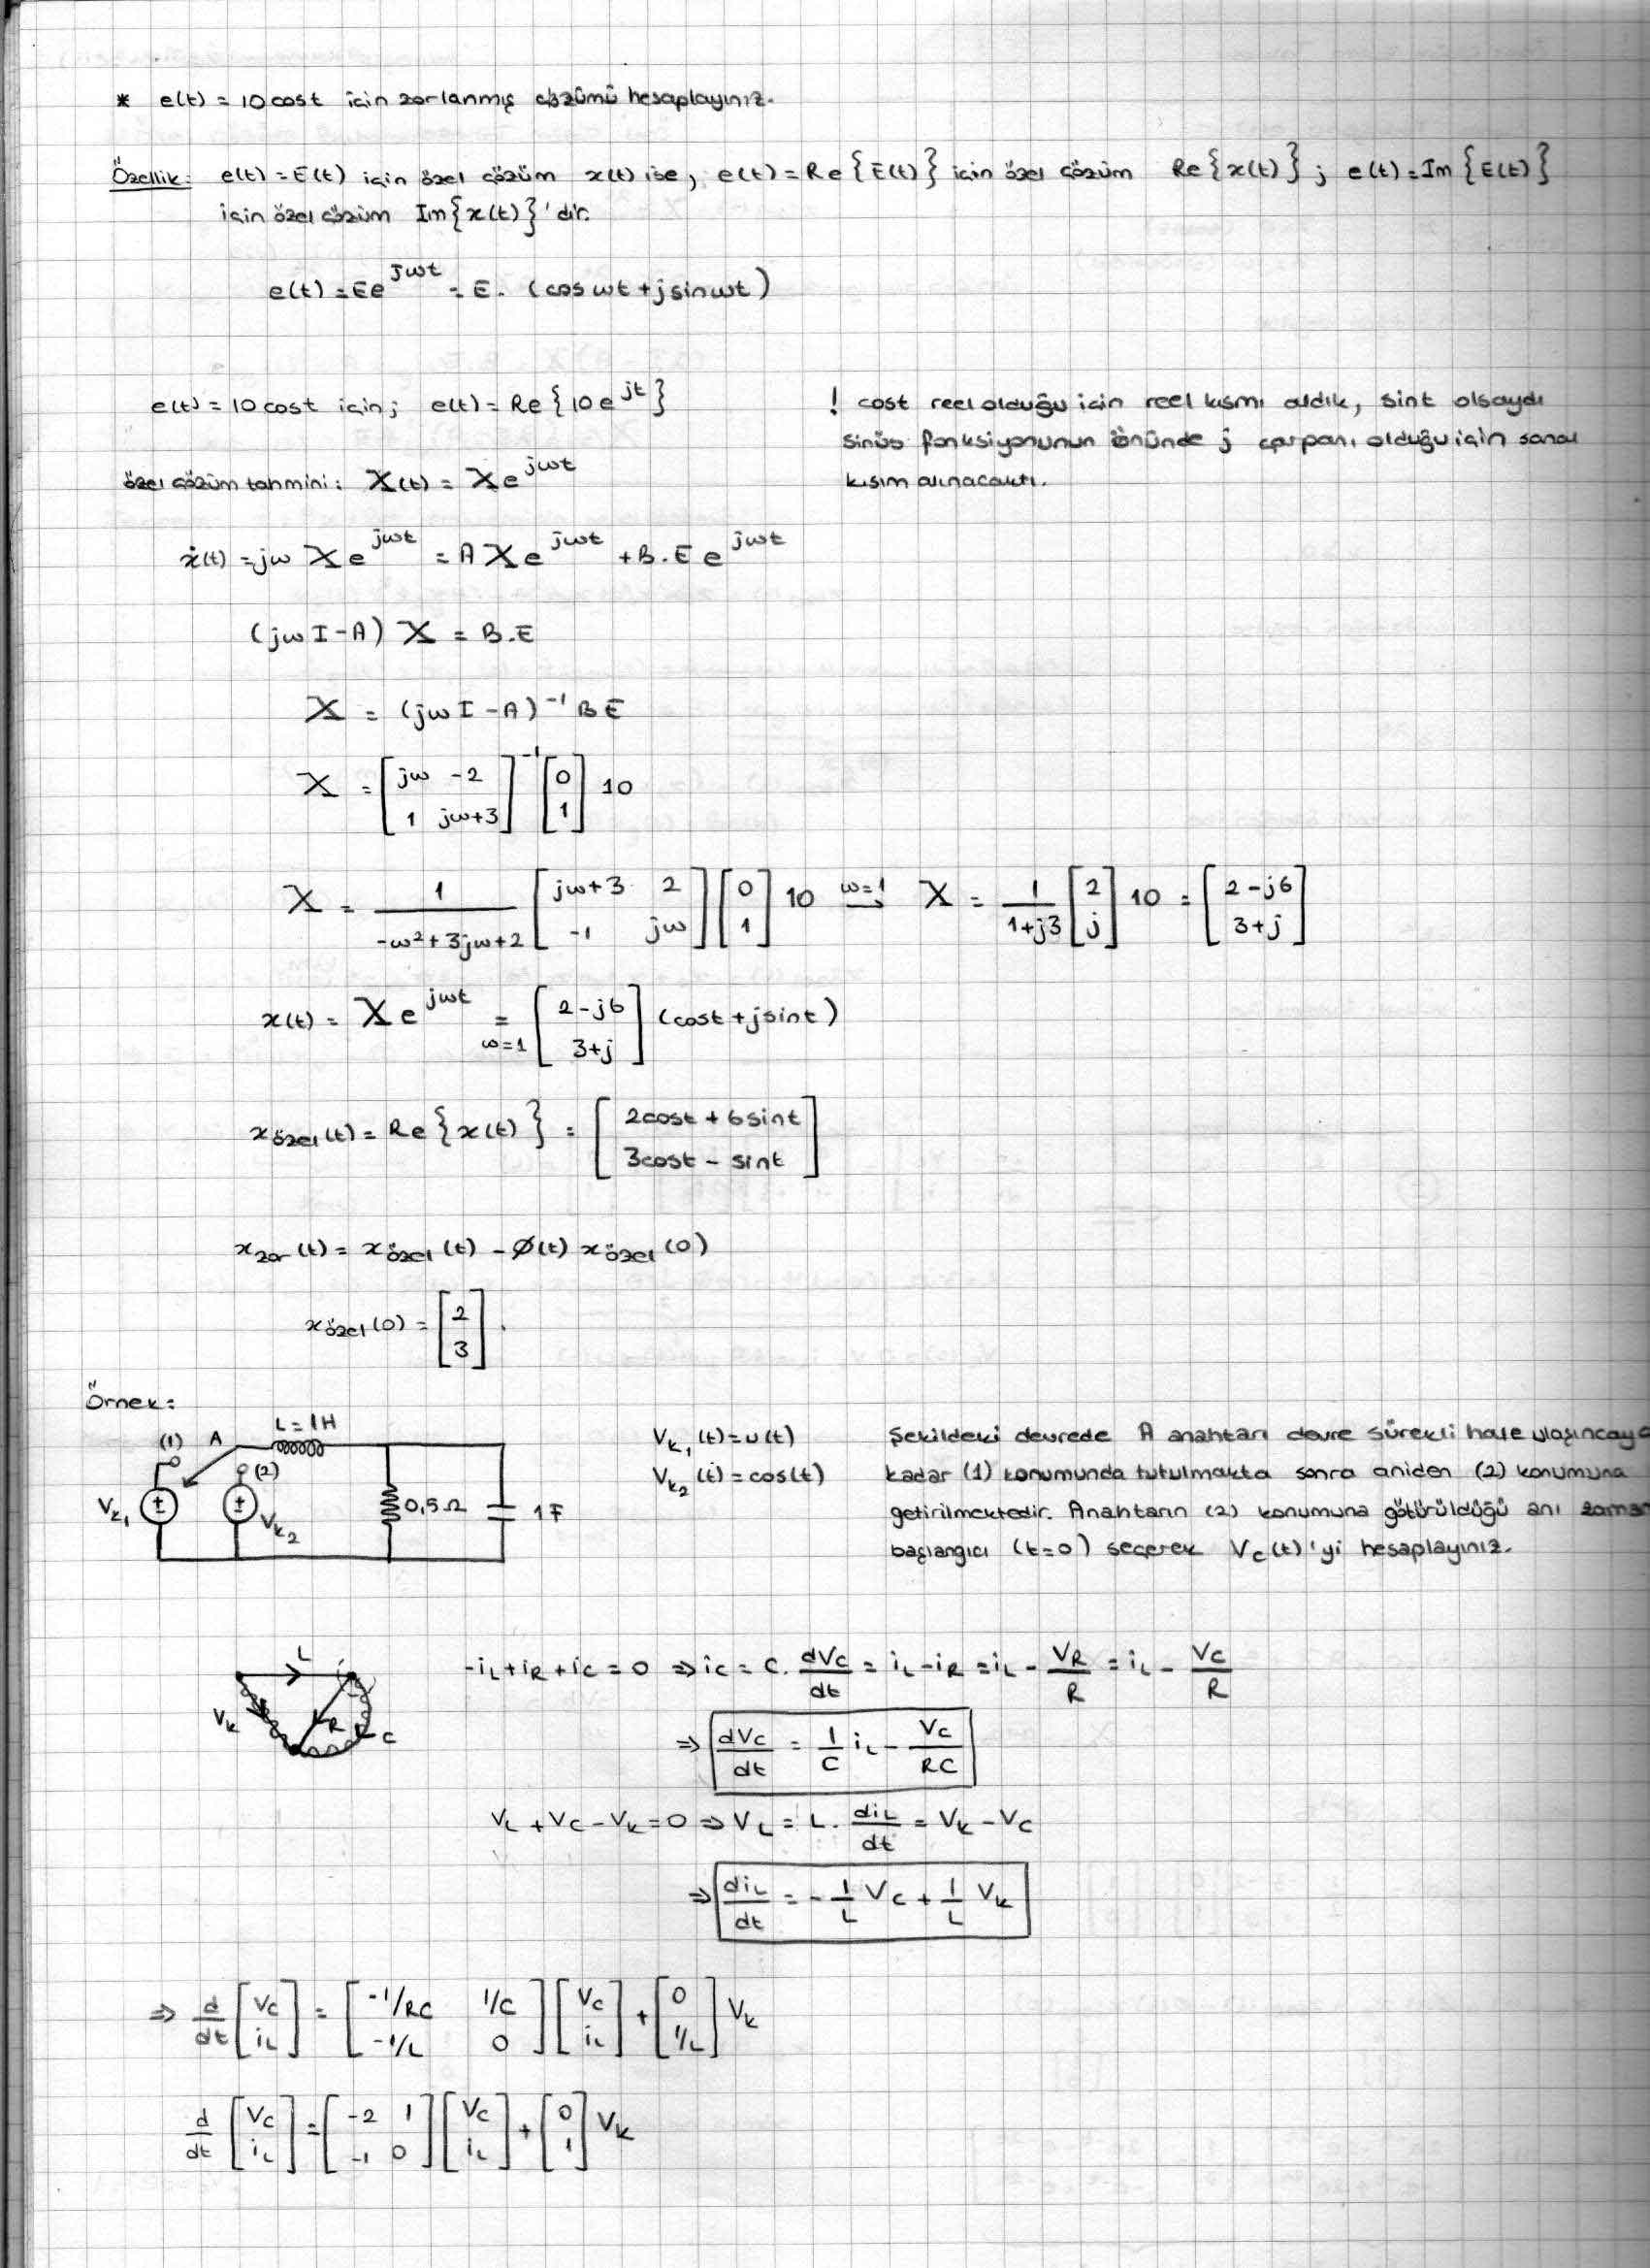 * e(t) = 10 cost için zorlanmış çözümü hesaplayınız.
Özellik: e(t) = E(t) için özel çözüm x(t) ise, e(t) = Re{E(t)} için özel çözüm Re{x(t)} ; e(t) = Im{E(t)}
için özel çözüm Im{x(t)}'dir.
e(t) = Ee^{jωt} = E. (cosωt + jsinωt)
e(t) = 10 cost için; e(t) = Re{10e^{jt}}
! cost reel olduğu için reel kısmı aldık, sint olsaydı
sinüs fonksiyonunun önünde j çarpanı olduğu için sanal
kısım alınacaktı.
özel çözüm tahmini: X(t) = Xe^{jωt}
ẋ(t) = jω X e^{jωt} = A X e^{jωt} + B.E e^{jωt}
(jωI - A) X = B.E
X = (jωI - A)^{-1} B E
X = [jω -2; 1 jω+3]^{-1} [0; 1] 10
X = 1/(-ω²+3jω+2) [jω+3 2; -1 jω] [0; 1] 10 →(ω=1) X = 1/(1+j3) [2; j] 10 = [2-j6; 3+j]
x(t) = X e^{jωt} =(ω=1) [2-j6; 3+j] (cost + jsint)
x_özel(t) = Re{x(t)} = [2cost + 6sint; 3cost - sint]
x_zor(t) = x_özel(t) - Ø(t) x_özel(0)
x_özel(0) = [2; 3].
Örnek:
L = 1H
(1) A (2)
V_k1 V_k2 0,5Ω 1F
V_k1(t) = u(t)
V_k2(t) = cos(t)
Şekildeki devrede A anahtarı devre sürekli hale ulaşıncaya
kadar (1) konumunda tutulmakta sonra aniden (2) konumuna
getirilmektedir. Anahtarın (2) konumuna götürüldüğü anı zaman
başlangıcı (t=0) seçerek V_c(t)'yi hesaplayınız.
L
V_k R C
-i_L + i_R + i_C = 0 ⇒ i_C = C. dV_C/dt = i_L - i_R = i_L - V_R/R = i_L - V_C/R
⇒ dV_C/dt = 1/C i_L - V_C/RC
V_L + V_C - V_k = 0 ⇒ V_L = L. di_L/dt = V_k - V_C
⇒ di_L/dt = - 1/L V_C + 1/L V_k
⇒ d/dt [V_C; i_L] = [-1/RC 1/C; -1/L 0] [V_C; i_L] + [0; 1/L] V_k
d/dt [V_C; i_L] = [-2 1; -1 0] [V_C; i_L] + [0; 1] V_k